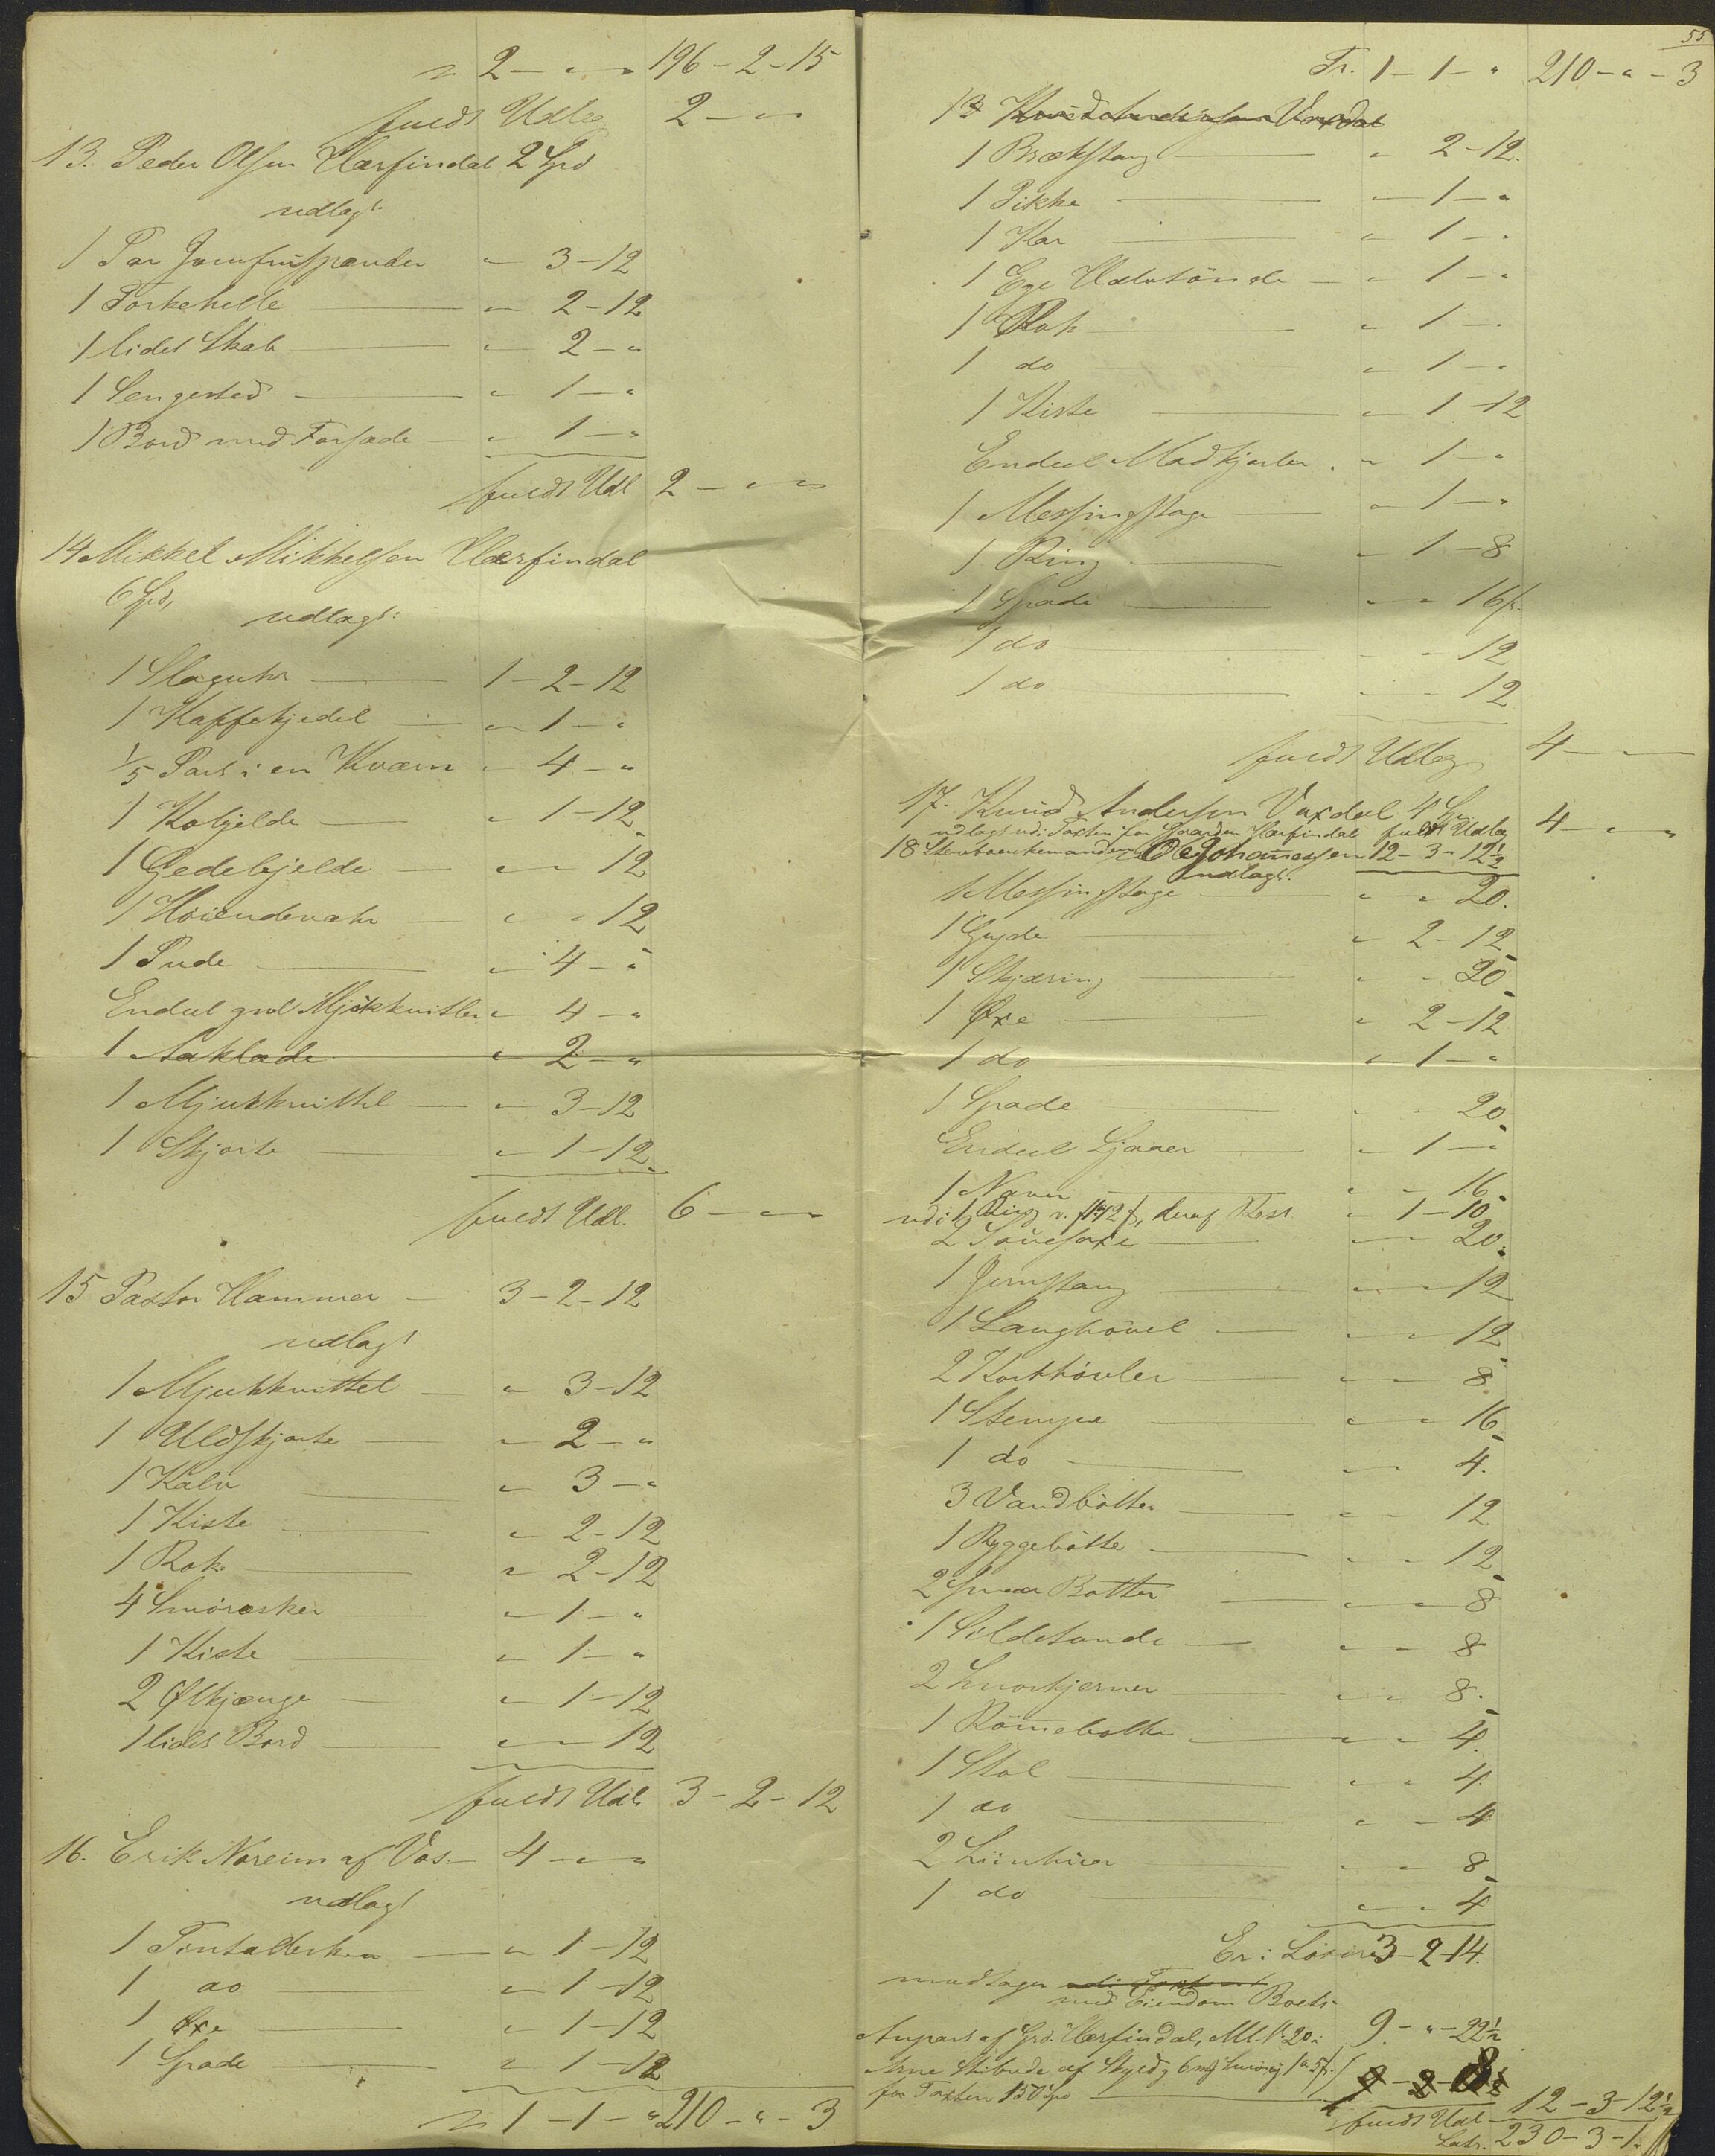 2 - " - " 196 - 2 - 15
fuldt Udlæg 2 - " - "
13. Peder Olsen Hærfindal 2 Spd
udlagt:
1 Par Jomfruspænder " - 3 - 12
1 Torkehelle " - 2 - 12
1 lidet Skab " - 2 - "
1 Sengested " - 1 - "
1 Bord med Forsæde " - 1 - "
fuldt Udl. 2 - " - "
14 Mikkel Mikkelsen Hærfindal
6 Spd,
udlagt:
1 Slaguhr 1 - 2 - 12
1 Kaffekjedel " - 1 - "
1/5 Part i en Kværn " - 4 - "
1 Kobjelde " - 1 - 12
1 Gedebjelde " - " - 12
1 Höiendevahr " - " - 12
1 Pude " - 4 - "
Endeel gml Mjökknitler " - 4 - "
1 Aaklæde " - 2 - "
1 Mjukknittel " - 3 - 12
1 Skjorte " - 1 - 12
fuldt Udl. 6 - " - "
15 Pastor Hammer 3 - 2 - 12
udlagt
1 Mjukknittel " - 3 - 12
1 Uldskjorte " - 2 - "
1 Kalv " - 3 - "
1 Kiste " - 2 - 12
1 Rok " - 2 - 12
4 Smöræsker " - 1 - "
1 Kiste " - 1 - "
2 Ølkjænge " - 1 - 12
1 lidet Bord " - " - 12
fuldt Udl. 3 - 2 - 12
16. Erik Noreim af Vos 4 - " - "
udlagt
1 Tintallerken " - 1 - 12
1 do " - 1 - 12
1 Øxe " - 1 - 12
1 Spade " - 1 - 12
1 - 1 - " 210 - " - 3
55
Tr. 1 - 1 - " 210 - " - 3
17 Knud Andersen Vaxdal
1 Brækstang " 2 - 12
1 Pikke " - 1 - "
1 Kar " - 1 - "
1 Ege Halvtönde " - 1 - "
1 Rok " - 1 - "
1 do " - 1 - "
1 Kiste " - 1 - 12
Endeel Madkjørler " - 1 - "
1 Messingstage " - 1 - "
1 Ring " - 1 - 8
1 Spade " - " 16 s.
1 do " - " 12
1 do " - " 12
fuldt Udlæg 4 - " - "
17. Knud Andersen Vaxdal 4 Spd
udlagt udi Taxten for Gaarden Hærfindal fuldt Udlæg 4 - " - "
18 Ole Johannessen 12 - 3 - 12½
udlagt:
1 Messingstage " - " 20.
1 Gryde " 2 - 12
1 Skjæring " - " 20
1 Øxe " 2 - 12
1 do " - 1 - "
1 Spade " - " 20
Endeel Ljaaer " - 1 - "
1 Naver " - " 16
udi 1 Ring v. 1 12 s, deraf Rest " - 1 - 10
2 Sauesaxe " - " 20
1 Jernstang " - " 12
1 Langhövel " - " 12
2 Korthövler " - " 8
1 Stempe " - " 16
1 do " - " 4
3 Vandbötter " - " 12
1 Ryggebötte " - " 12
2 smaa Bötter " - " 8
1 Sildetönde " - " 8
2 Smorkjerner " - " 8
1 Römmebötte " - " 4
1 Stol " - " 4
1 do " - " 4
2 " - " 8
1 do " - " 4
Er: Lösöre 3 - 2 - 14
modtager udi Taxten
med Eiendom Boets
Anpart af Grd. Hærfindal, Ml. 20 9 - " - 22½
Arne af Skyld 6 mk Smör
for Taxten 150 Spd
fuldt Udl 12 - 3 - 12½
Latr. 230 - 3 - 1